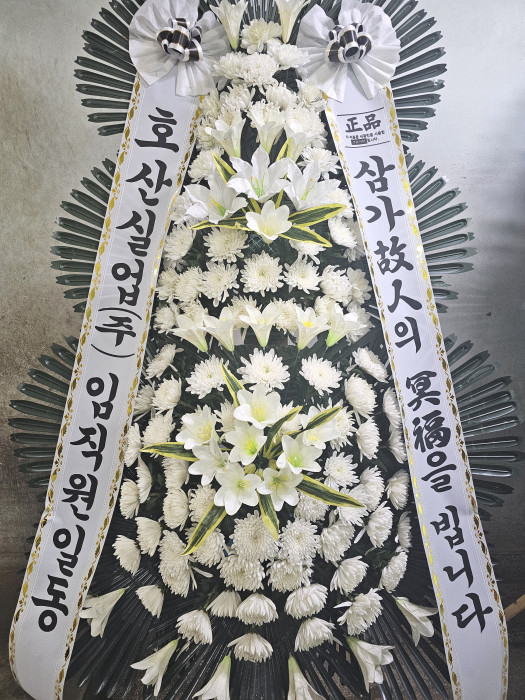 호산실업(주) 임직원일동
正品
삼가 故人의 冥福을 빕니다